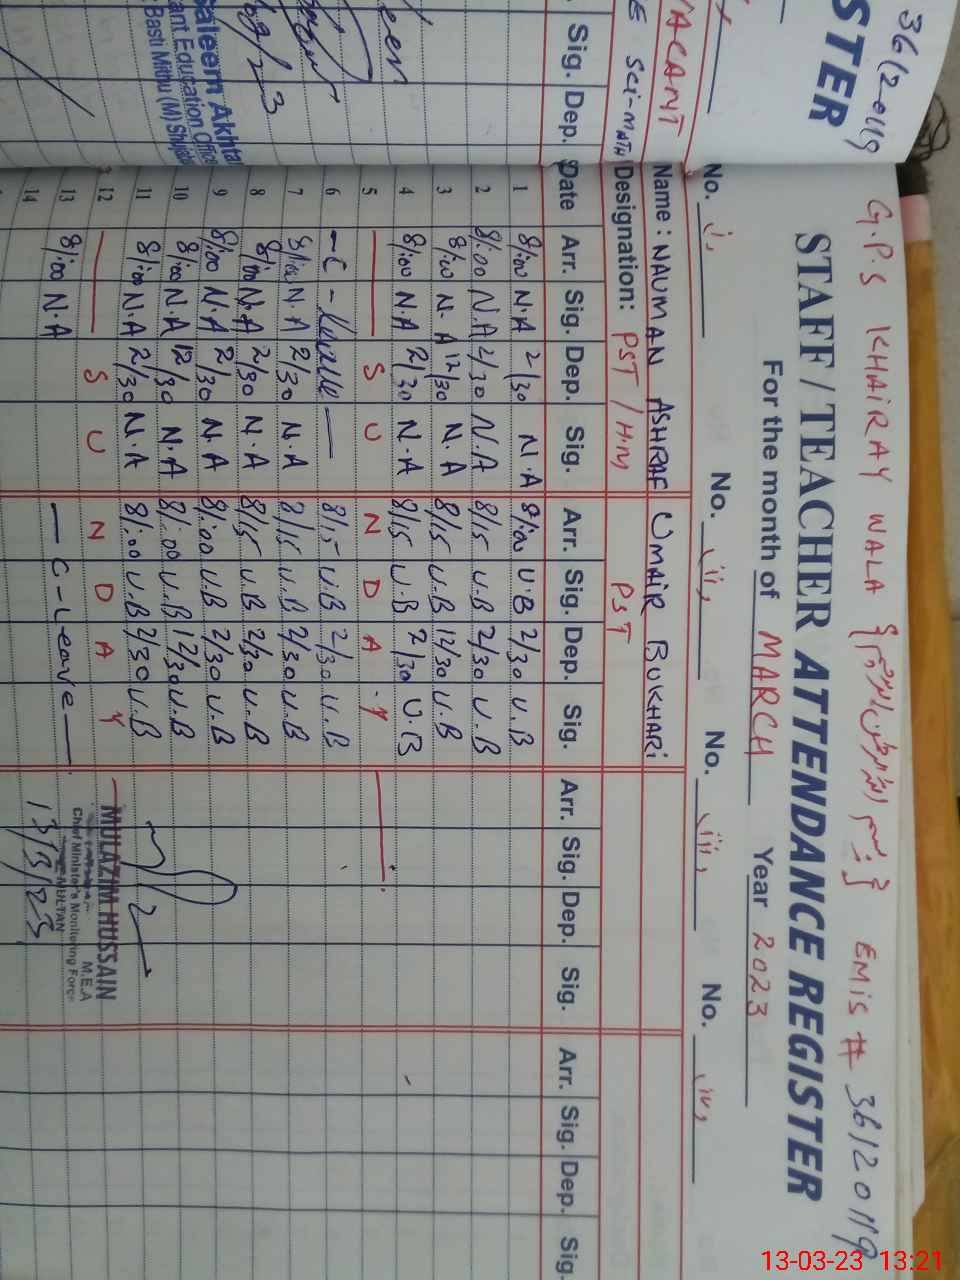 36120119
STER
VACANT
SCI-MATH
Sig. Dep.
Saleem Akhta
ant Education Offic
Basti Mithu (M) Shuja
G.P.S KHAIRAY WALA
EMiS # 36120119
STAFF / TEACHER ATTENDANCE REGISTER
For the month of MARCH Year 2023
No. i, No. ii, No. iii, No. iv,
Name: NAUMAN ASHRAF UMAIR BUKHARI
Designation: PST / H.M PST
Date Arr. Sig. Dep. Sig. Arr. Sig. Dep. Sig. Arr. Sig. Dep. Sig. Arr. Sig. Dep. Sig.
1 8/:00 N.A 2/30 N.A 8/:00 U.B 2/30 U.B
2 8/:00 N.A 2/30 N.A 8/15 U.B 2/30 U.B
3 8/:00 N.A 12/30 N.A 8/15 U.B 12/30 U.B
4 8/:00 N.A 2/30 N.A 8/15 U.B 2/30 U.B
5 S U N D A Y
6 - C - Leave - 8/15 U.B 2/30 U.B
7 8/:00 N.A 2/30 N.A 8/15 U.B 2/30 U.B
8 8/:00 N.A 2/30 N.A 8/15 U.B 2/30 U.B
9 8/:00 N.A 2/30 N.A 8/:00 U.B 2/30 U.B
10 8/:00 N.A 12/30 N.A 8/:00 U.B 12/30 U.B
11 8/:00 N.A 2/30 N.A 8/:00 U.B 2/30 U.B
12 S U N D A Y
13 8/:00 N.A - C - Leave -
14
MULAZIM HUSSAIN
M.E.A
Chief Minister's Monitoring Force
MULTAN
13/3/23
13-03-23 13:21